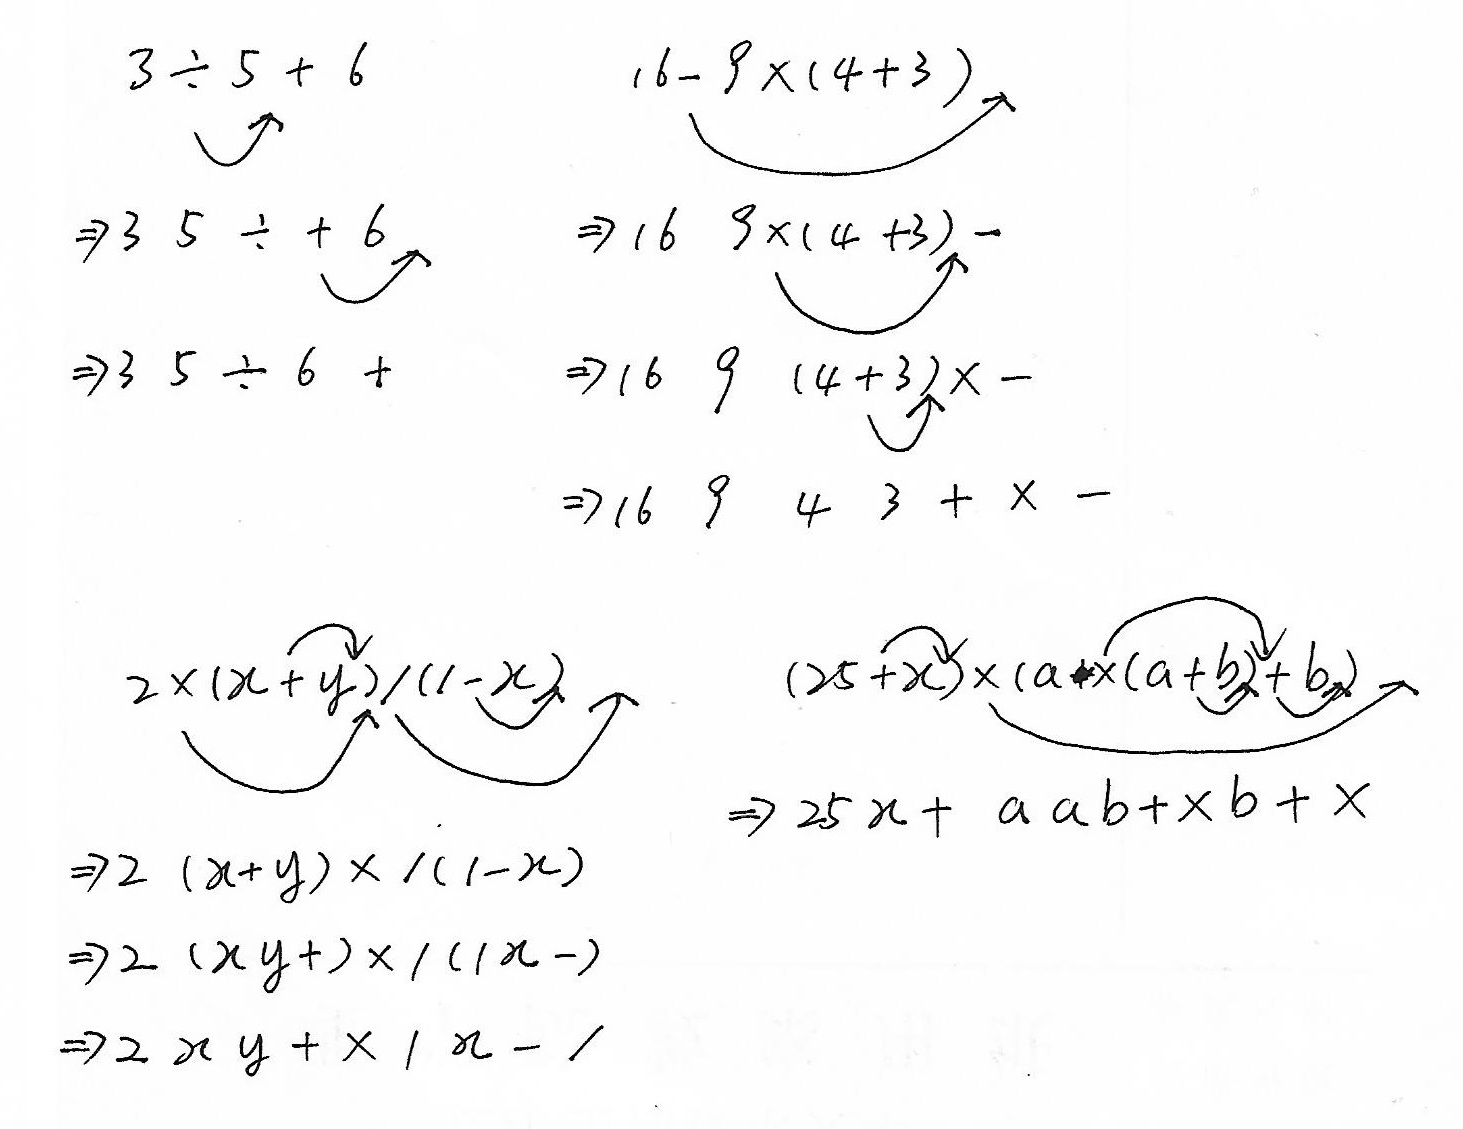 3 ÷ 5 + 6
⇒ 3 5 ÷ + 6
⇒ 3 5 ÷ 6 +
16 - 9 × (4 + 3)
⇒ 16 9 × (4 + 3) -
⇒ 16 9 (4 + 3) × -
⇒ 16 9 4 3 + × -
2 × (x + y) / (1 - x)
⇒ 2 (x + y) × / (1 - x)
⇒ 2 (x y +) × / (1 x -)
⇒ 2 x y + × 1 x - /
(25 + x) × (a × (a + b) + b)
⇒ 25 x + a a b + × b + ×